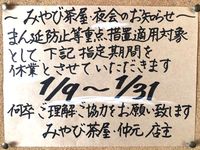 ～みやび茶屋・夜会のお知らせ～
まん延防止等重点措置適用対象
として、下記指定期間を
休業とさせていただきます
1/9～1/31
何卒ご理解ご協力をお願い致します
みやび茶屋・仲元 店主